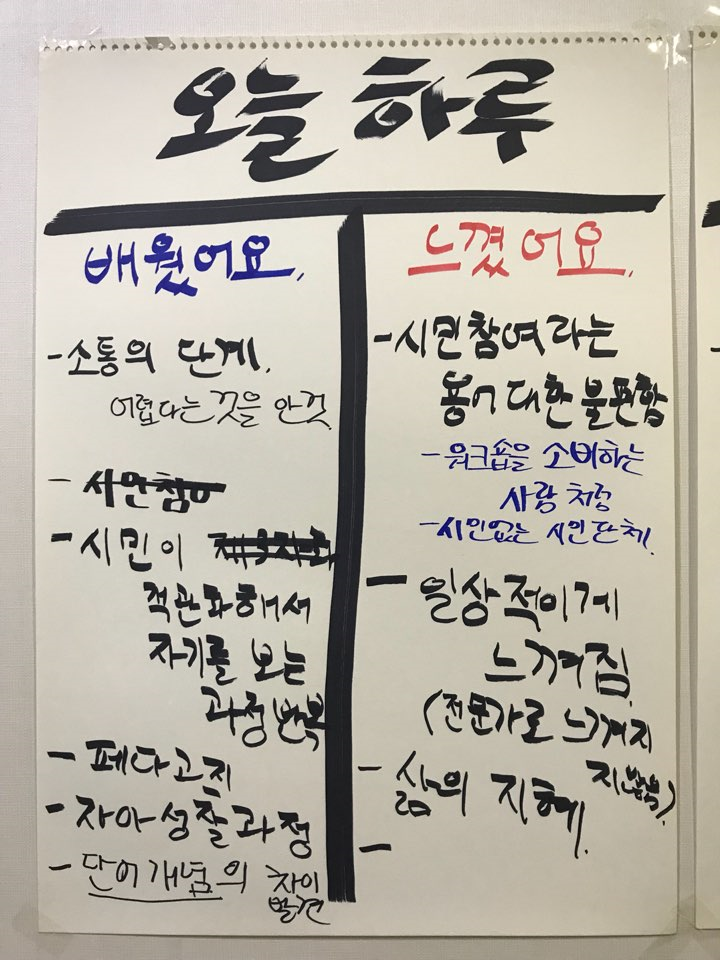 오늘 하루
배웠어요.
-소통의 단계.
어렵다는 것을 안 것
-
-시민이
객관화해서
자기를 보는
과정 반복
-페다고지
-자아성찰과정
-단어개념의 차이
발견
느꼈어요.
-시민참여라는
용어 대한 불편함
-워크숍을 소비하는
사람 처럼
-시민없는 시민단체.
- 일상적이게
느껴짐.
(전문가로 느껴지
지 않음)
- 삶의 지혜.
-